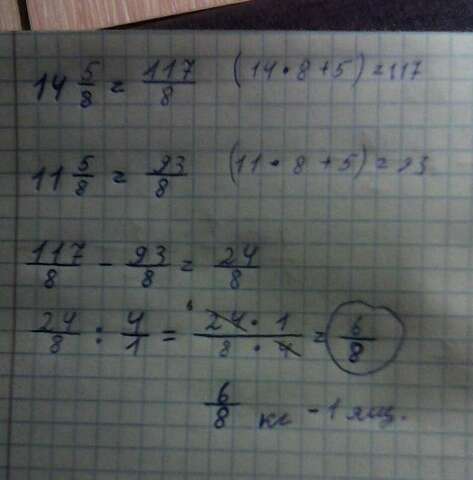 14 5/8 = 117/8 (14 • 8 + 5) = 117
11 5/8 = 93/8 (11 • 8 + 5) = 93
117/8 - 93/8 = 24/8
24/8 : 4/1 = 6 24 • 1 / 8 • 4 = 6/8
6/8 кг - 1 ящ.